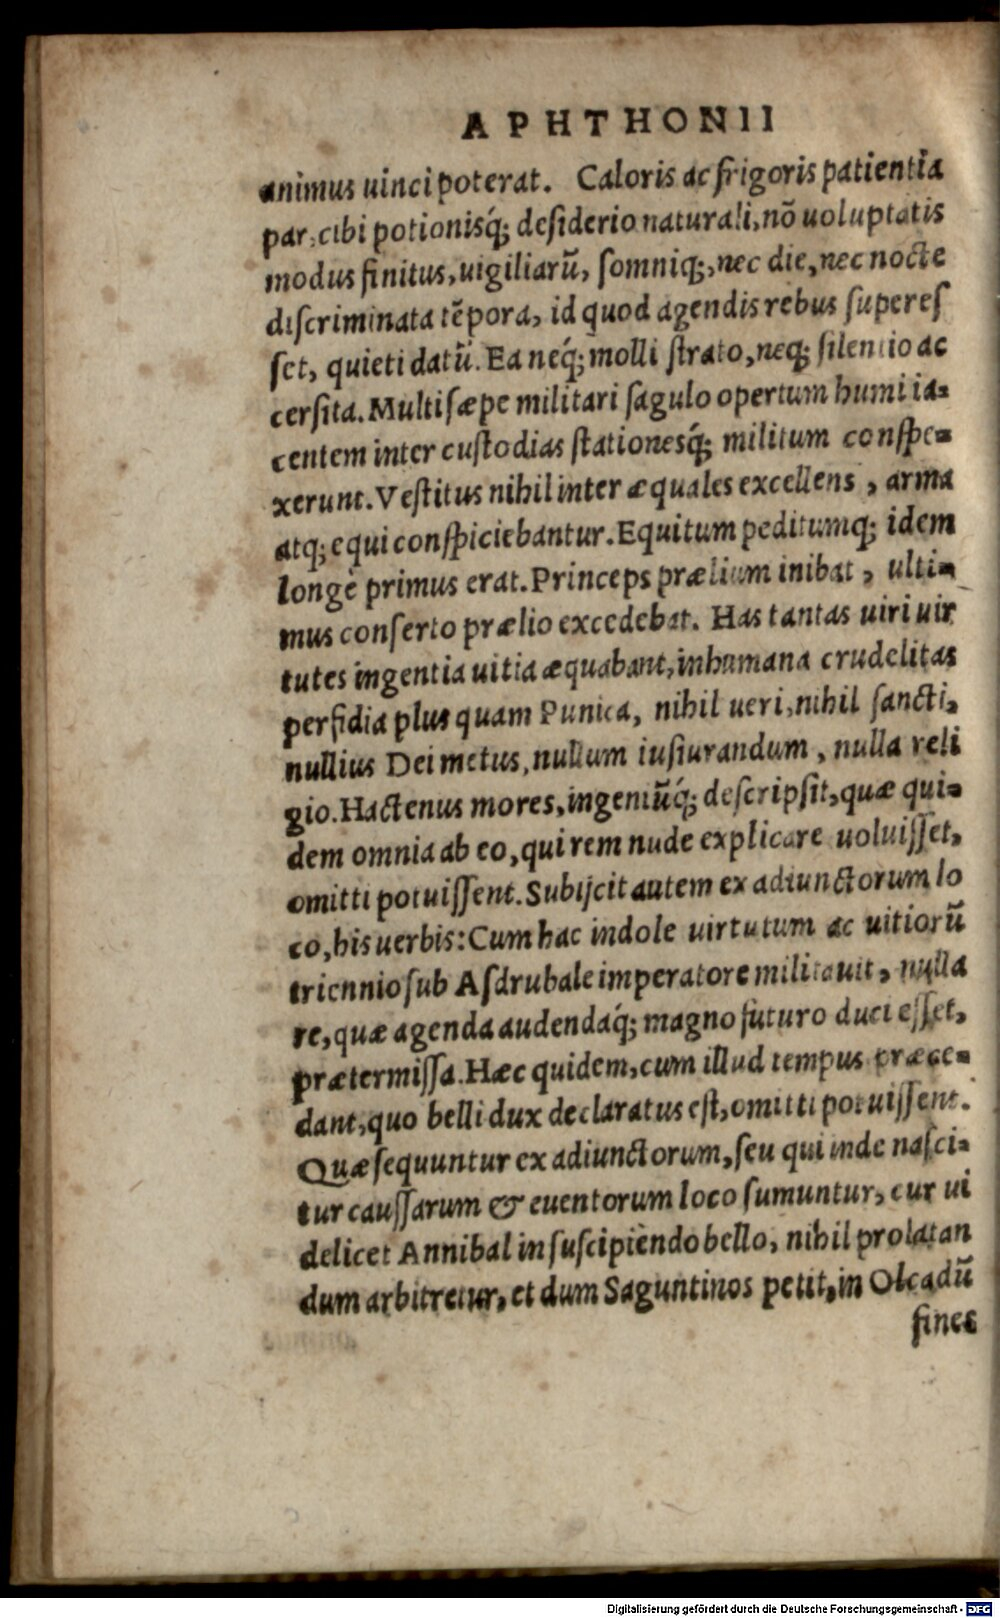 APHTHONII
animus uinci poterat. Caloris ac frigoris patientia
par, cibi potionisq́; desiderio naturali, nō uoluptatis
modus finitus, uigiliarū, somniq;, nec die, nec nocte
discriminata tēpora, id quod agendis rebus superes
set, quieti datū. Ea neq́; molli strato, neq; silentio ac
cersita. Multi sæpe militari sagulo opertum humi ia-
centem inter custodias stationesq́; militum conspe-
xerunt. Vestitus nihil inter æquales excellens, arma
atq; equi conspiciebantur. Equitum peditumq; idem
longè primus erat. Princeps prælium inibat, ulti-
mus conserto prælio excedebat. Has tantas uiri uir
tutes ingentia uitia æquabant, inhumana crudelitas
perfidia plus quam Punica, nihil ueri, nihil sancti,
nullius Dei metus, nullum iusiurandum, nulla reli
gio. Hactenus mores, ingeniūq́; descripsit, quæ qui-
dem omnia ab eo, qui rem nude explicare uoluisset,
omitti potuissent. Subijcit autem ex adiunctorum lo
co, his uerbis: Cum hac indole uirtutum ac uitiorū
triennio sub Asdrubale imperatore militauit, nulla
re, quæ agenda audendaq́; magno futuro duci esset,
prætermissa. Hæc quidem, cum illud tempus præce-
dant, quo belli dux declaratus est, omitti potuissent.
Quæ sequuntur ex adiunctorum, seu qui inde nasci-
tur caussarum & euentorum loco sumuntur, cur ui
delicet Annibal in suscipiendo bello, nihil prolatan
dum arbitretur, et dum Saguntinos petit, in Olcadū
fines
Digitalisierung gefördert durch die Deutsche Forschungsgemeinschaft - DFG